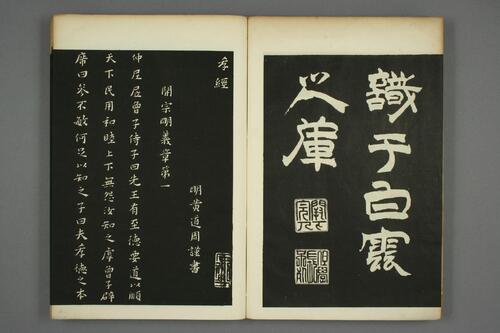 識于白雲
之庫
孝經
明黃道周謹書
開宗明義章第一
仲尼居曾子侍子曰先王有至德要道以順
天下民用和睦上下無怨汝知之虖曾子辟
席曰參不敏何足以知之子曰夫孝德之本